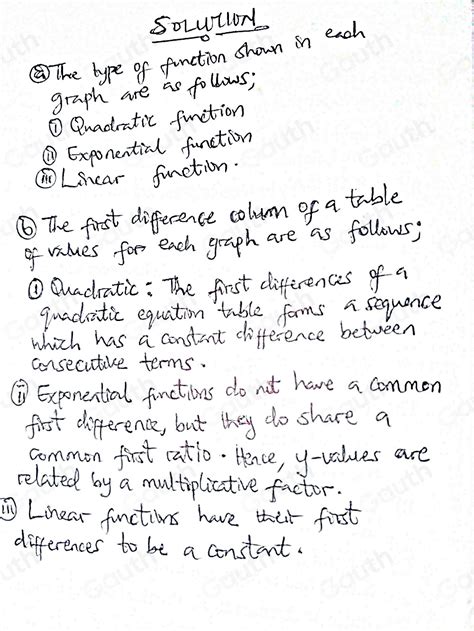 SOLUTION
ⓐ The type of function shown in each
graph are as follows;
ⓘ Quadratic function
ⓘⓘ Exponential function
ⓘⓘⓘ Linear function.
ⓑ The first difference column of a table
of values for each graph are as follows;
ⓘ Quadratic: The first differences of a
quadratic equation table forms a sequence
which has a constant difference between
consecutive terms.
ⓘⓘ Exponential functions do not have a common
first difference, but they do share a
common first ratio. Hence, y-values are
related by a multiplicative factor.
ⓘⓘⓘ Linear functions have their first
differences to be a constant.
Gauth